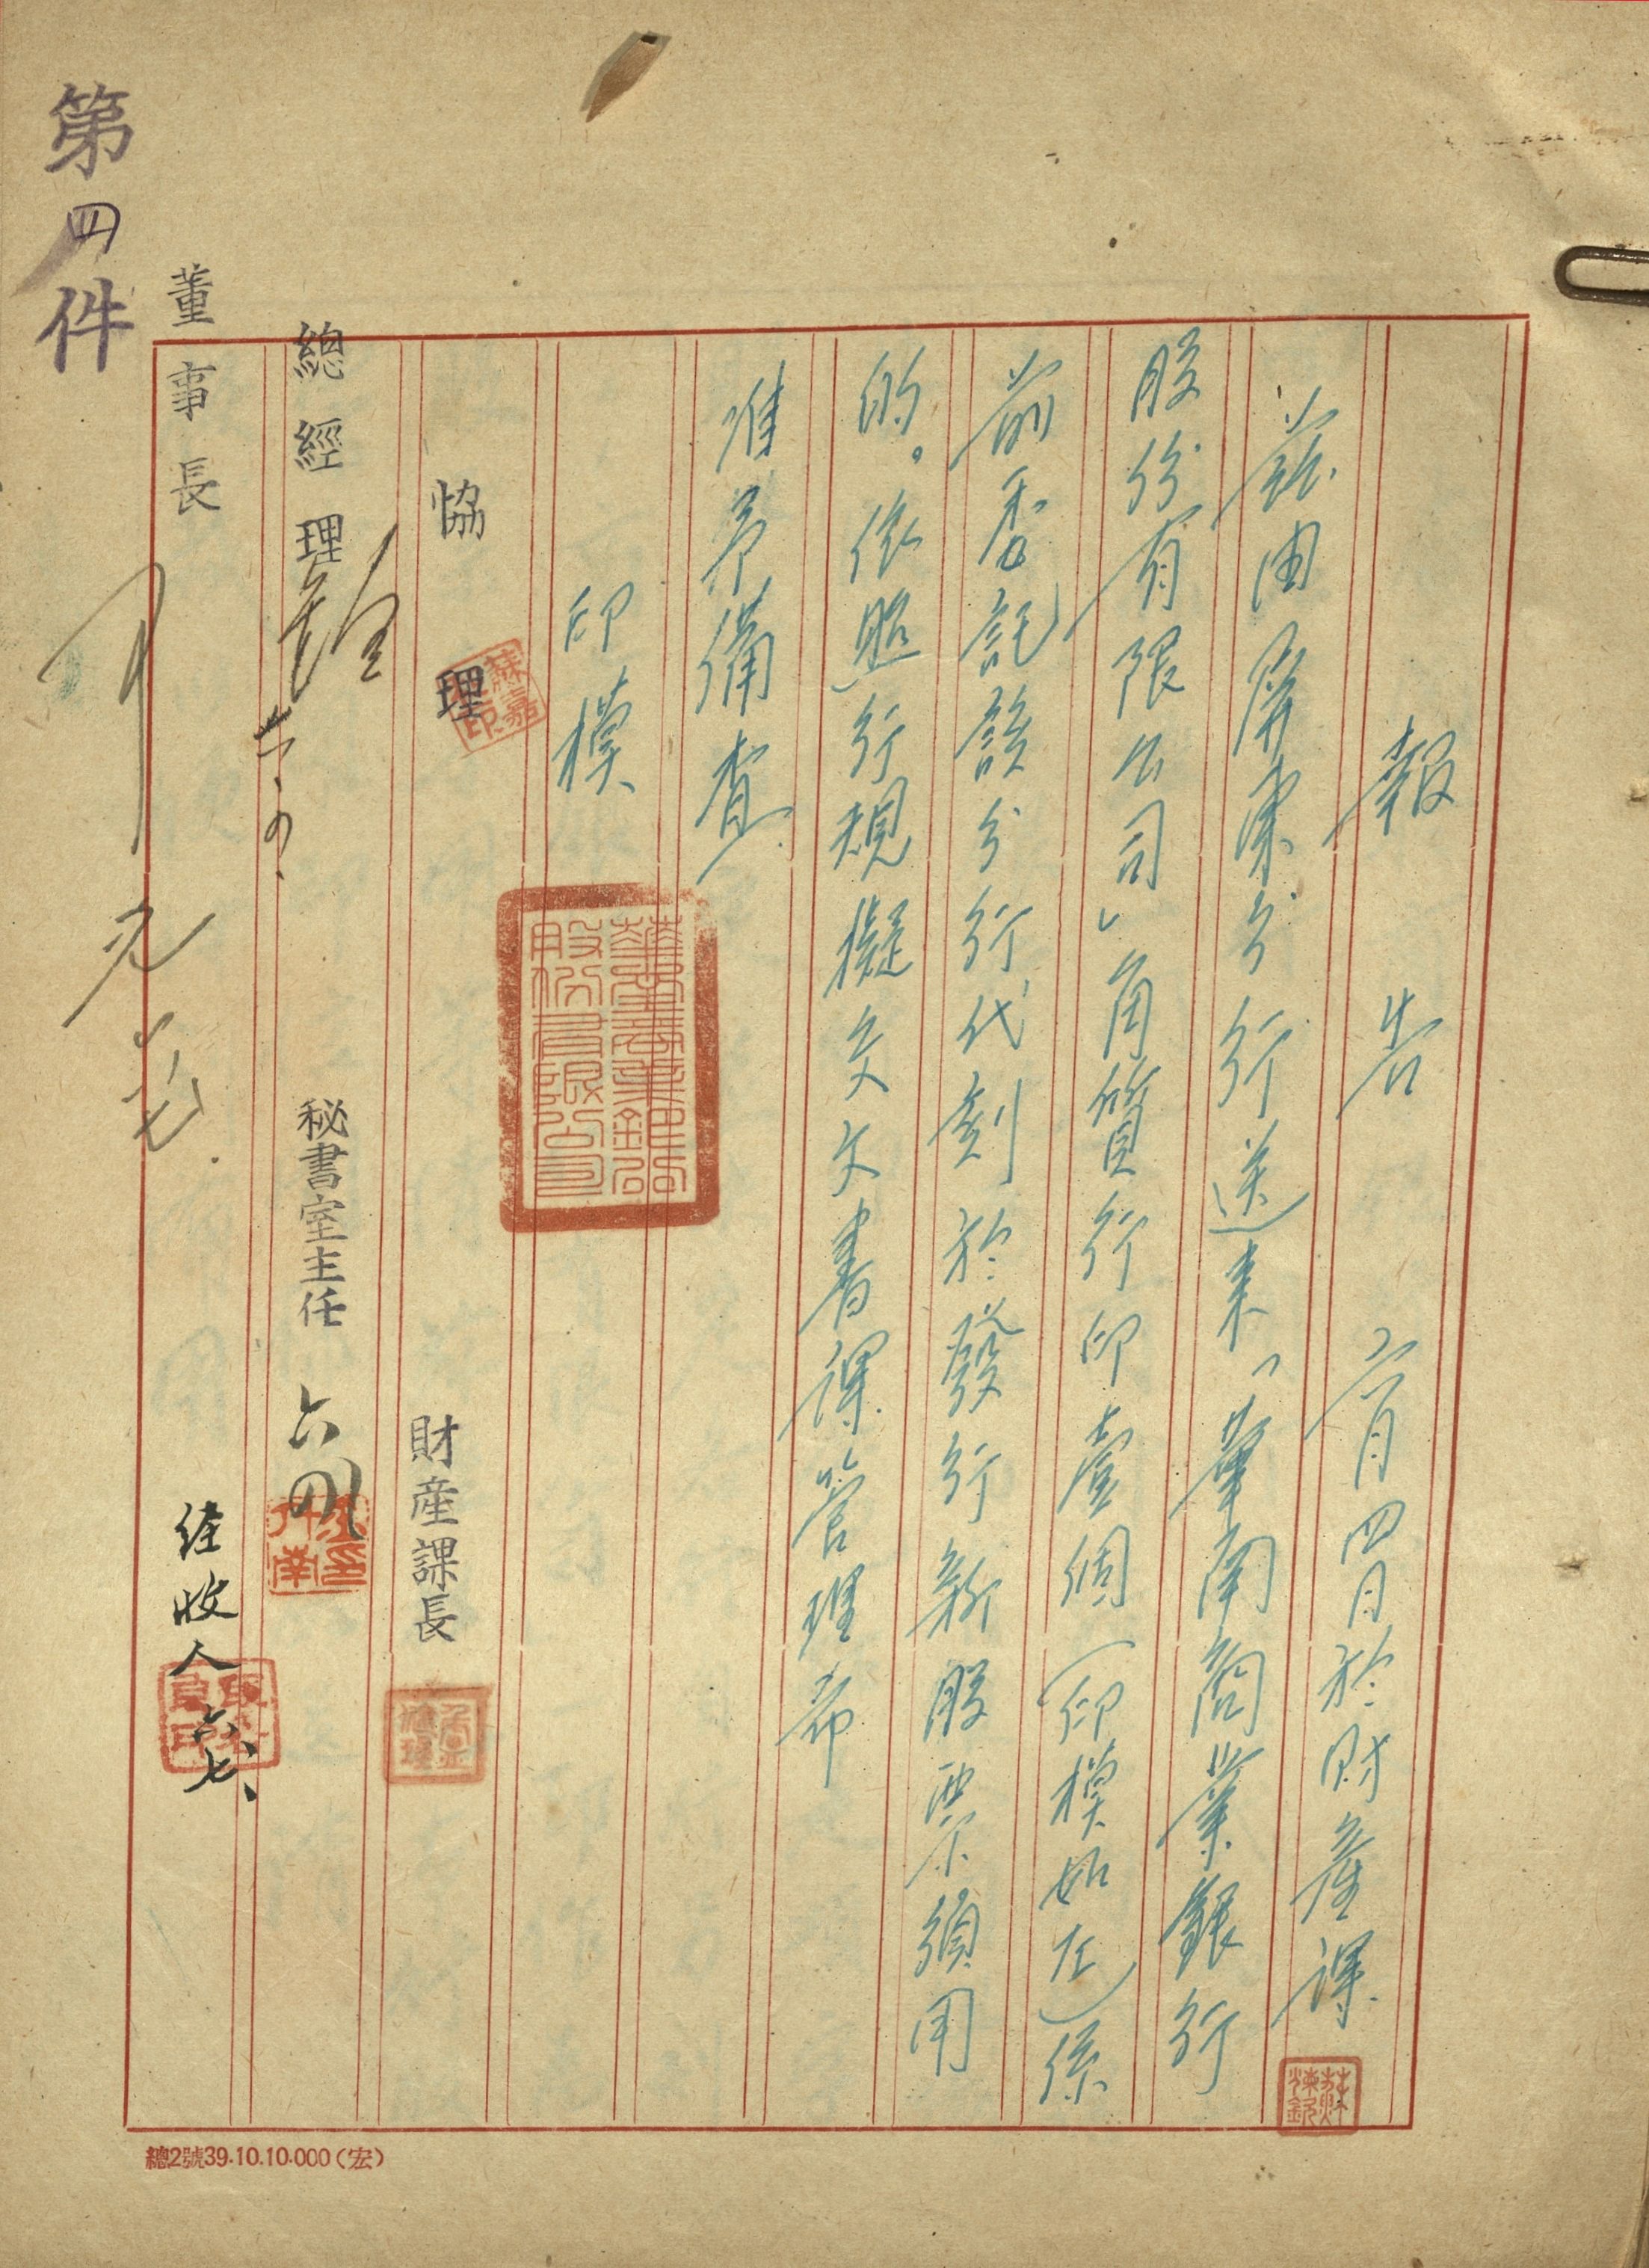 報告 六月四日於財產課
茲由屏東分行送來「華南商業銀行
股份有限公司」角質行印壹個(印模如左)係
前委託該分行代刻於發行新股票須用
的。依照行規擬交文書課管理希
准予備查
印模
華南商業銀行
股份有限公司
協理
財產課長
總經理
秘書室主任 六四
董事長
经收人 六、七、
第四件
總2號39.10.10.000(宏)